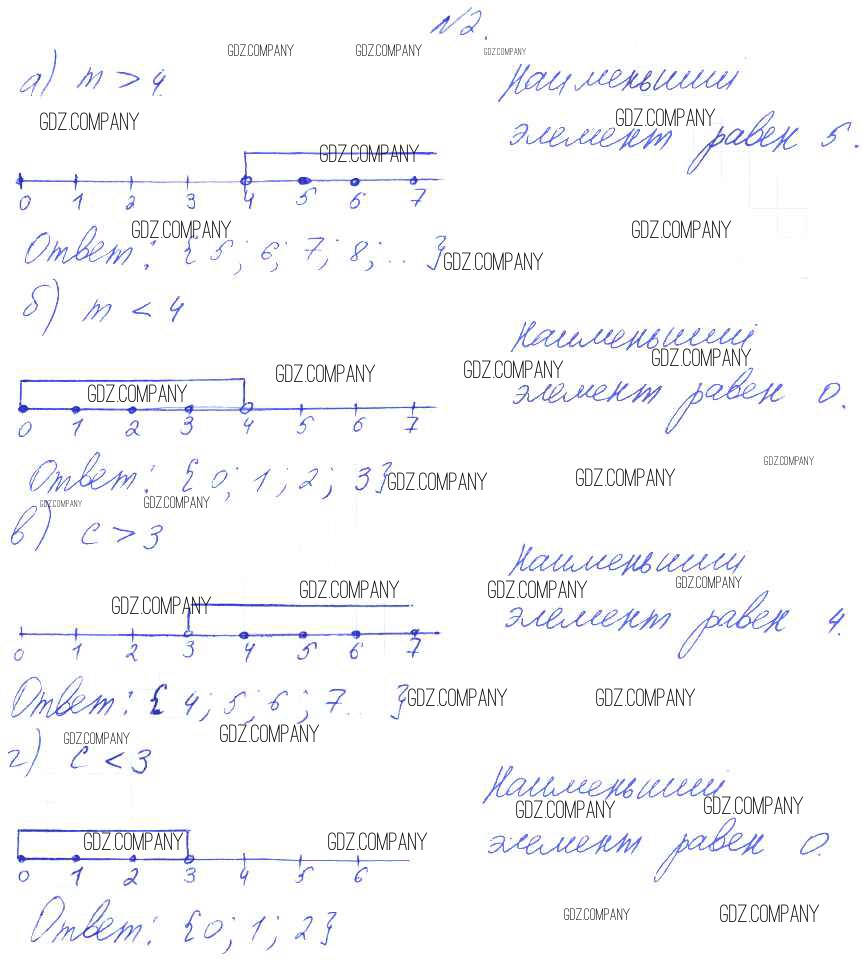 N2.
GDZ.COMPANY GDZ.COMPANY GDZ.COMPANY
а) m > 4. Наименьший
GDZ.COMPANY GDZ.COMPANY
элемент равен 5.
GDZ.COMPANY
0 1 2 3 4 5 6 7
GDZ.COMPANY GDZ.COMPANY
Ответ: {5; 6; 7; 8; ..}
GDZ.COMPANY
б) m < 4
Наименьший
GDZ.COMPANY GDZ.COMPANY GDZ.COMPANY
GDZ.COMPANY элемент равен 0.
0 1 2 3 4 5 6 7
GDZ.COMPANY
Ответ: {0; 1; 2; 3}
GDZ.COMPANY GDZ.COMPANY
GDZ.COMPANY GDZ.COMPANY
в) c > 3
Наименьший
GDZ.COMPANY GDZ.COMPANY GDZ.COMPANY
GDZ.COMPANY элемент равен 4.
0 1 2 3 4 5 6 7
Ответ: {4; 5; 6; 7.. }
GDZ.COMPANY GDZ.COMPANY
GDZ.COMPANY GDZ.COMPANY
г) c < 3
Наименьший
GDZ.COMPANY GDZ.COMPANY
GDZ.COMPANY GDZ.COMPANY элемент равен 0.
0 1 2 3 4 5 6
Ответ: {0; 1; 2}
GDZ.COMPANY GDZ.COMPANY